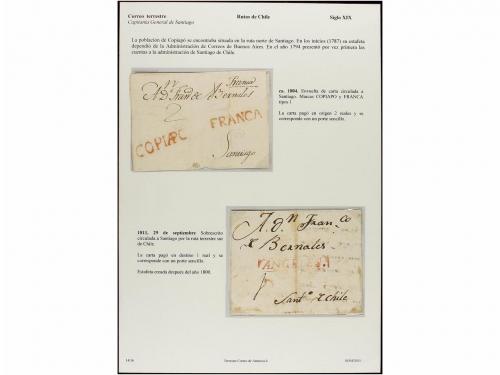 Correo terrestre Rutas de Chile Siglo XIX
Capitanía General de Santiago
La población de Copiapó se encontraba situada en la ruta norte de Santiago. En los inicios (1787) su estafeta
dependió de la Administración de Correos de Buenos Aires. En el año 1794 presentó por vez primera las
cuentas a la administración de Santiago de Chile.
Franca
A D. Fran.co de Bernales
2
COPIAPO FRANCA
Santiago
ca. 1804. Envuelta de carta circulada a
Santiago. Marcas COPIAPO y FRANCA
tipos 1
La carta pagó en origen 2 reales y se
corresponde con un porte sencillo.
1811, 29 de septiembre Sobrescrito
circulada a Santiago por la ruta terrestre sur
de Chile.
La carta pagó en destino 1 real y se
corresponde con un porte sencillo.
Estafeta creada después del año 1800.
A. dn Franco
Bernales
ANGELES
1
Santo. Chile